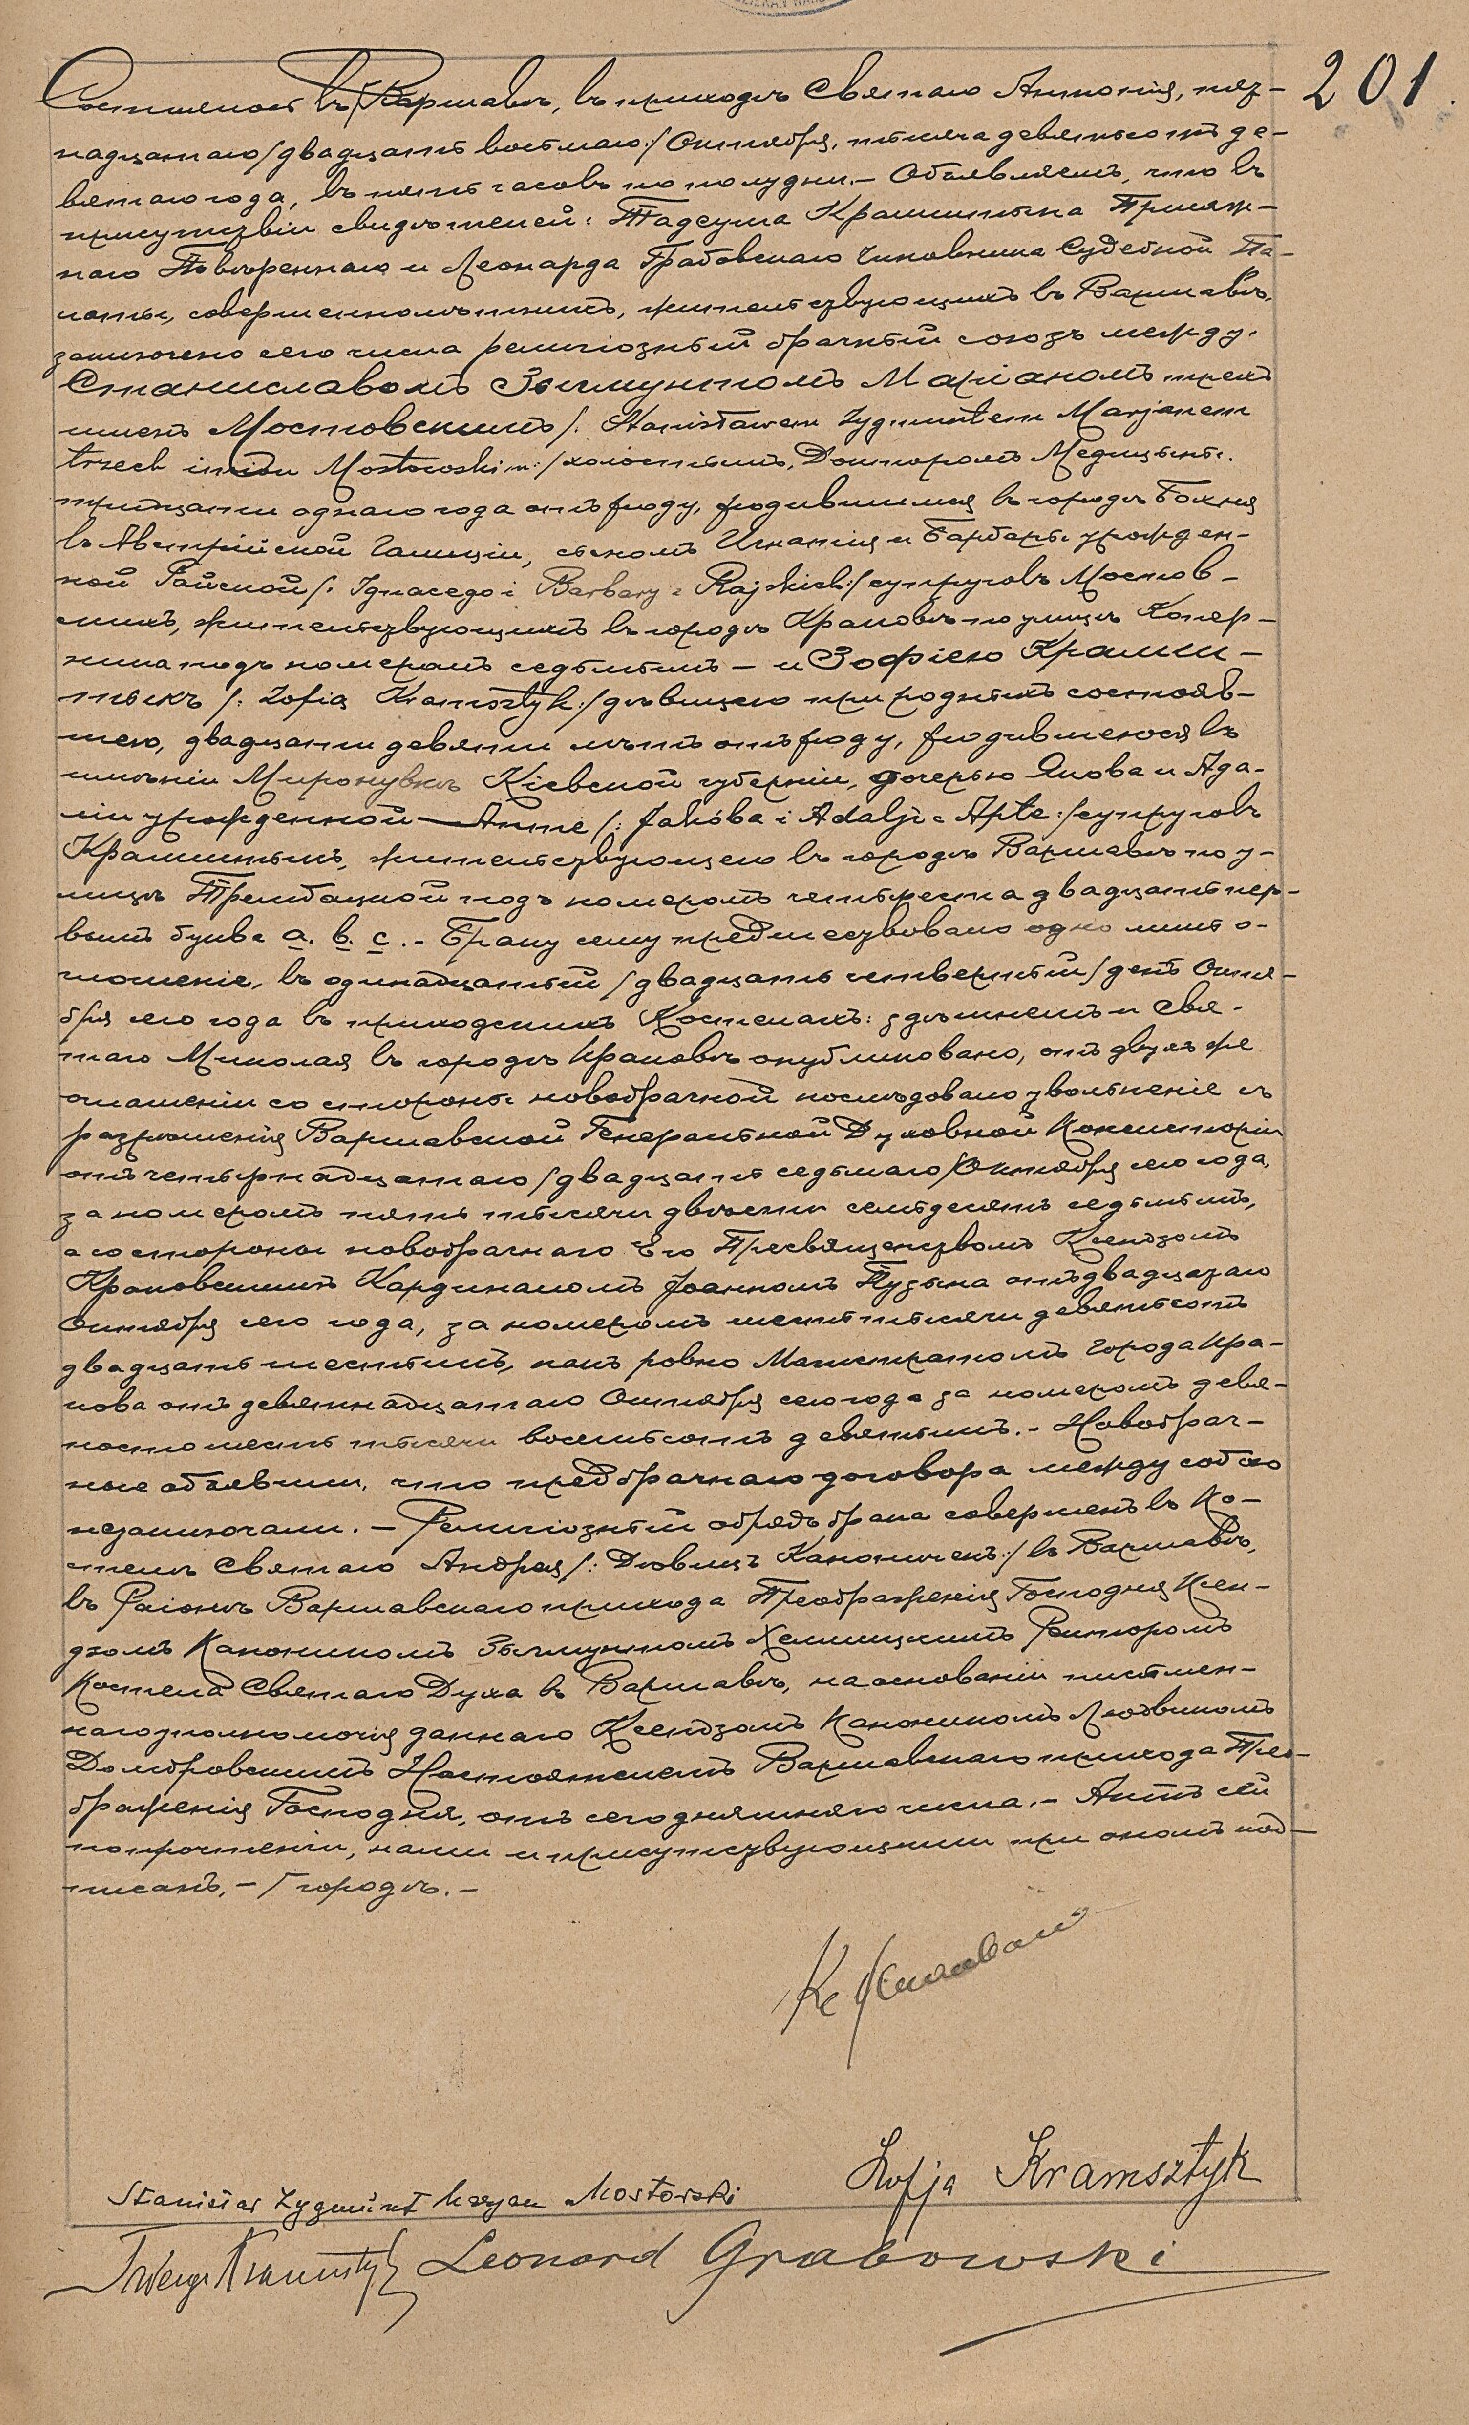 201
Состоялось въ Варшавѣ, въ приходѣ Святаго Антонія, пят-
надцатаго /двадцать восьмаго:/ Октября, тысяча девятьсотъ де-
вятаго года, въ пять часовъ по полудни. – Объявляемъ, что въ
присутствіи свидѣтелей: Тадеуша Крамштыка Присяж-
наго Повѣреннаго и Леонарда Грабовскаго Чиновника Судебной Па-
латы, совершеннолѣтнихъ, жительствующихъ въ Варшавѣ,
заключенъ сего числа религіозный брачный союзъ между:
Станиславомъ Зыгмунтомъ Маріаномъ трехъ
именъ Мостовскимъ /: Stanisławem Zygmuntem Marjanem
trzech imion Mostowskim:/ холостымъ, Докторомъ Медицины,
тридцати одного года отъ роду, родившимся въ городѣ Бохня
въ Австрійской Галиціи, сыномъ Игнатія и Барбары урожден-
ной Райской /: Ignacego i Barbary z Rajskich:/ супруговъ Мостов-
скихъ, жительствующихъ въ городѣ Краковѣ по улицѣ Копер-
ника подъ номеромъ седьмымъ – и Зофіею Крамш-
тыкъ /: Zofią Kramsztyk:/ дѣвицею при родныхъ состояв-
шею, двадцати девяти лѣтъ отъ роду, родившеюся въ
имѣніи Миронувкѣ Кіевской губерніи, дочерью Якова и Ада-
ліи урожденной Апте /: Jakóba i Adalji z Apte:/ супруговъ
Крамштыкъ, жительствующею въ городѣ Варшавѣ по у-
лицѣ Трембацкой подъ номеромъ четыреста двадцать пер-
вымъ буква a. b. c. – Браку сему предшествовало одно лишь о-
глашеніе, въ одинадцатый /двадцать четвертый/ день Октя-
бря сего года въ приходскихъ Костелахъ: здѣшнемъ и Свя-
таго Николая въ городѣ Краковѣ опубликовано, отъ двухъ же
оглашеній со стороны новобрачной послѣдовало увольненіе съ
разрѣшенія Варшавской Генеральной Духовной Консисторіи
отъ четырнадцатаго /двадцать седьмаго/ Октября сего года,
за номеромъ пять тысячи двѣсти семьдесятъ седьмымъ,
а со стороны новобрачнаго Его Преосвященствомъ Ксендзомъ
Краковскимъ Кардиналомъ Іоанномъ Пузына отъ двадцатаго
Октября сего года, за номеромъ шесть тысячи девятьсотъ
двадцать шестымъ, какъ ровно Магистратомъ города Кра-
кова отъ девятнадцатаго Октября сего года за номеромъ девя-
носто шесть тысячи восемьсотъ девятымъ. – Новобрач-
ные объявили, что предбрачнаго договора между собою
незаключали. – Религіозный обрядъ брака совершенъ въ Ко-
стелѣ Святаго Андрея /: Дѣвицъ Каноничекъ:/ въ Варшавѣ,
въ Районѣ Варшавскаго прихода Преображенія Господня Ксен-
дзомъ Каноникомъ Зыгмунтомъ Хелмицкимъ Ректоромъ
Костела Святаго Духа въ Варшавѣ, на основаніи письмен-
наго уполномочія даннаго Ксендзомъ Каноникомъ Людвикомъ
Домбровскимъ Настоятелемъ Варшавскаго прихода Прео-
браженія Господня, отъ сегодняшняго числа. – Актъ сей
по прочтеніи, нами и присутствующими при ономъ под-
писанъ. – / городѣ. –
Zofja Kramsztyk
Stanisław Zygmunt Maryan Mostowski
Leonard Grabowski